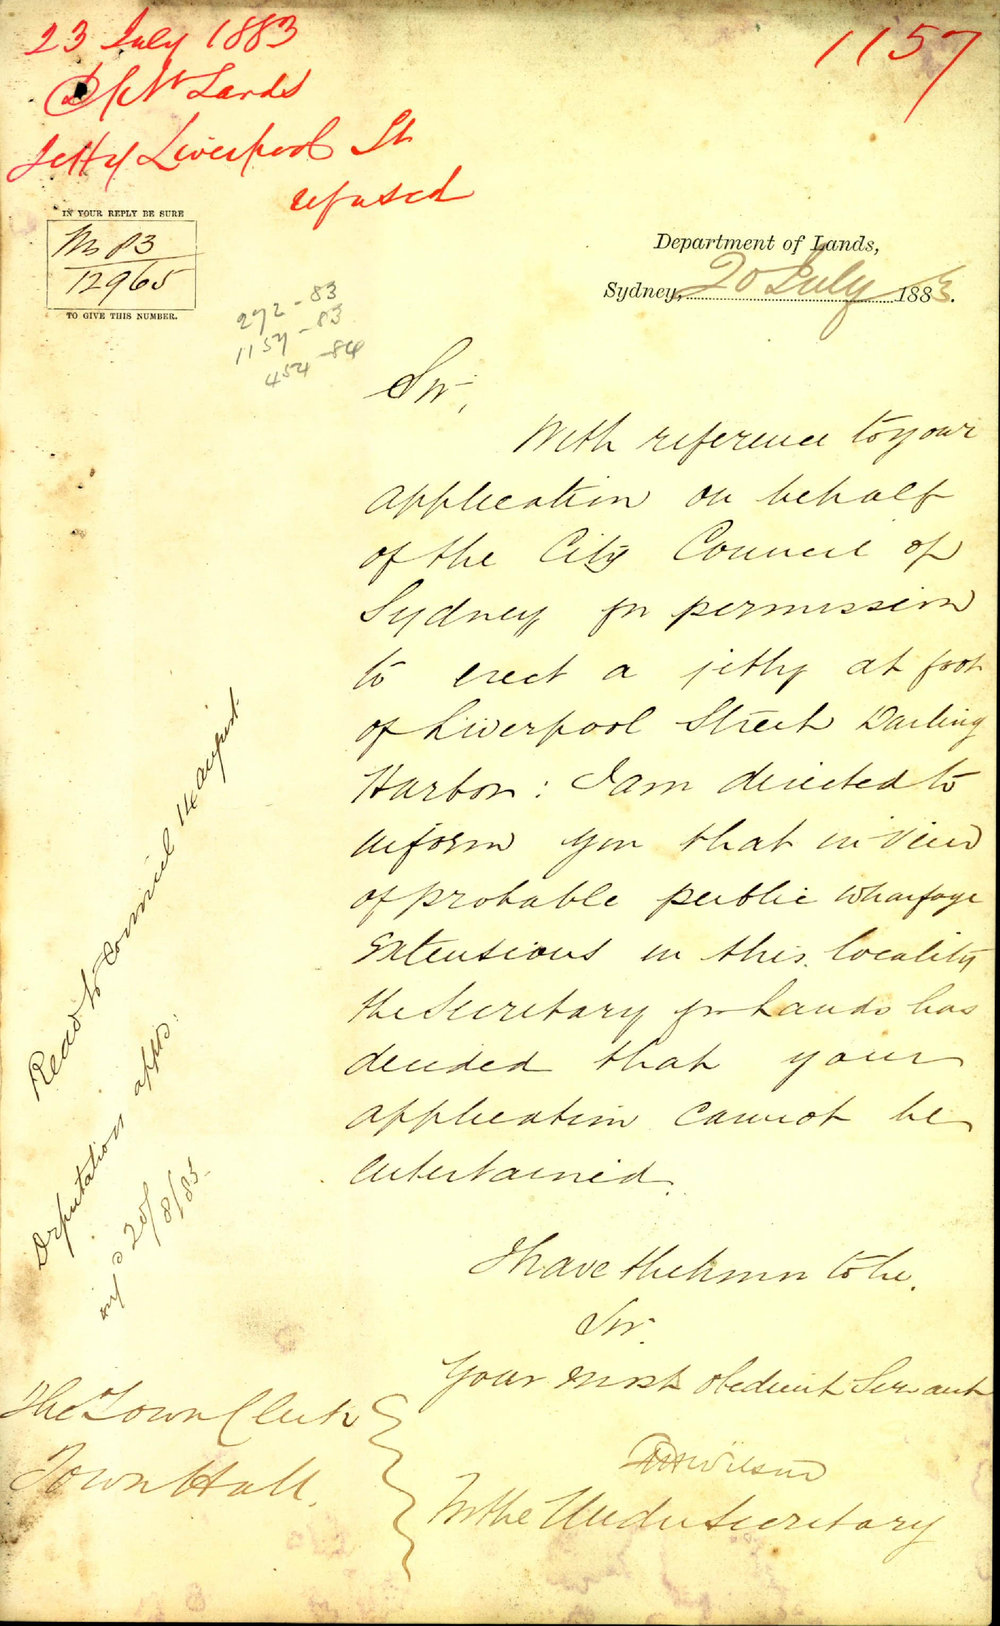 23 July 1883
1157
Lands
Jetty Liverpool St
refused
IN YOUR REPLY BE SURE
Ms 83
12965
TO GIVE THIS NUMBER.
272-83
1157-83
454-84
Department of Lands,
Sydney, 20 July 1883.
Sir,
With reference to your
application on behalf
of the City Council of
Sydney for permission
to erect a jetty at foot
of Liverpool Street Darling
Harbor: I am directed to
inform you that in view
of probable public wharfage
extensions in this locality
the Secretary for Lands has
decided that your
application cannot be
entertained.
I have the honor to be,
Sir.
Your most obedient Servant
Wilson
For the Under Secretary
The Town Clerk
Town Hall.
Read to Council 14 August.
Deputation appts.
20/8/83